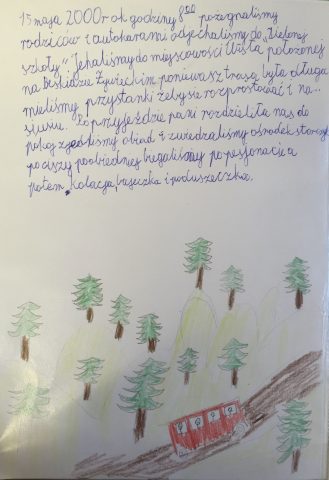 15 maja 2000 rok godziny 8⁵⁰ pożegnaliśmy
rodziców i autokarami odjechaliśmy do „Zielonej
szkoły". Jehaliśmy do miejscowości Wisła położonej
na Beskidzie Żywieckim ponieważ trasa była długa
mieliśmy przystanki żeby się rozprostować i na
siusie. Po przyjeździe pani rozdzieliła nas do
pokoj zjedliśmy obiad i zwiedzaliśmy ośrodek
po ciszy poobiedniej biegaliśmy po pesjonacie a
potem kolacja, bajeczka i poduszeczka.